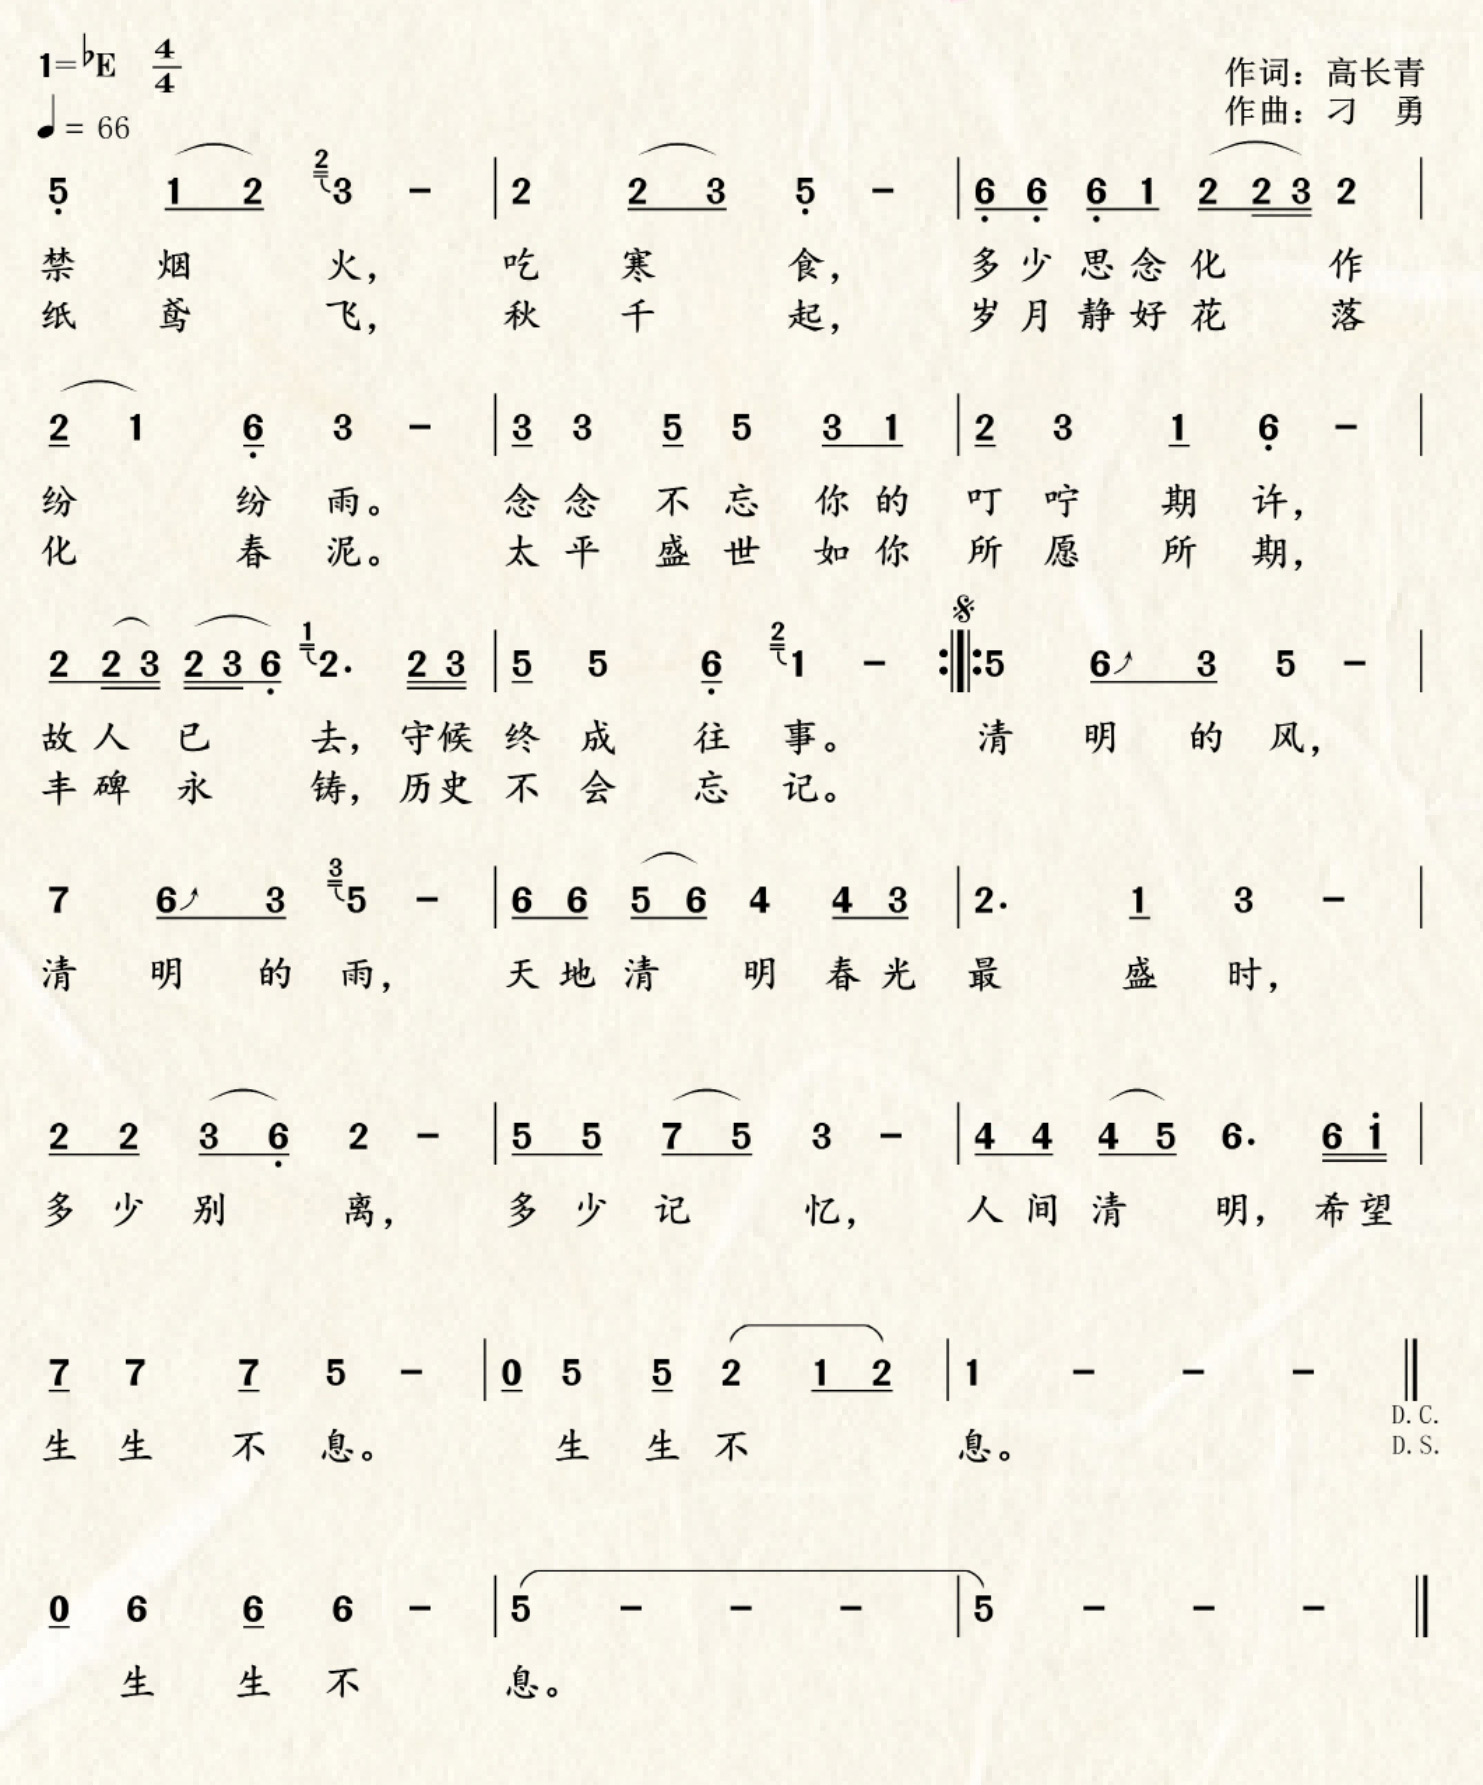 1=♭E 4/4
作词：高长青
♩= 66
作曲：刁　勇
5̣ 1 2 ²3 – | 2 2 3 5̣ – | 6̣ 6̣ 6̣ 1 2 2 3 2 |
禁 烟 火， 吃 寒 食， 多 少 思 念 化 作
纸 鸢 飞， 秋 千 起， 岁 月 静 好 花 落
2 1 6̣ 3 – | 3 3 5 5 3 1 | 2 3 1 6̣ – |
纷 纷 雨。 念 念 不 忘 你 的 叮 咛 期 许，
化 春 泥。 太 平 盛 世 如 你 所 愿 所 期，
2 2 3 2 3 6̣ ¹2. 2 3 | 5 5 6̣ ²1 – :‖: 𝄋 5 6↗ 3 5 – |
故 人 已 去， 守 候 终 成 往 事。 清 明 的 风，
丰 碑 永 铸， 历 史 不 会 忘 记。
7 6↗ 3 ³5 – | 6 6 5 6 4 4 3 | 2. 1 3 – |
清 明 的 雨， 天 地 清 明 春 光 最 盛 时，
2 2 3 6̣ 2 – | 5 5 7 5 3 – | 4 4 4 5 6. 6 1̇ |
多 少 别 离， 多 少 记 忆， 人 间 清 明， 希 望
7 7 7 5 – | 0 5 5 2 1 2 | 1 – – – ‖
D.C.
D.S.
生 生 不 息。 生 生 不 息。
0 6 6 6 – | 5 – – – | 5 – – – ‖
生 生 不 息。